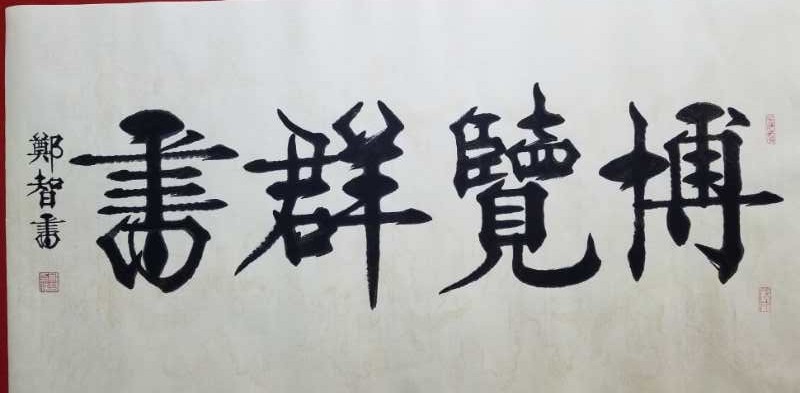 博覽群書
鄭智書